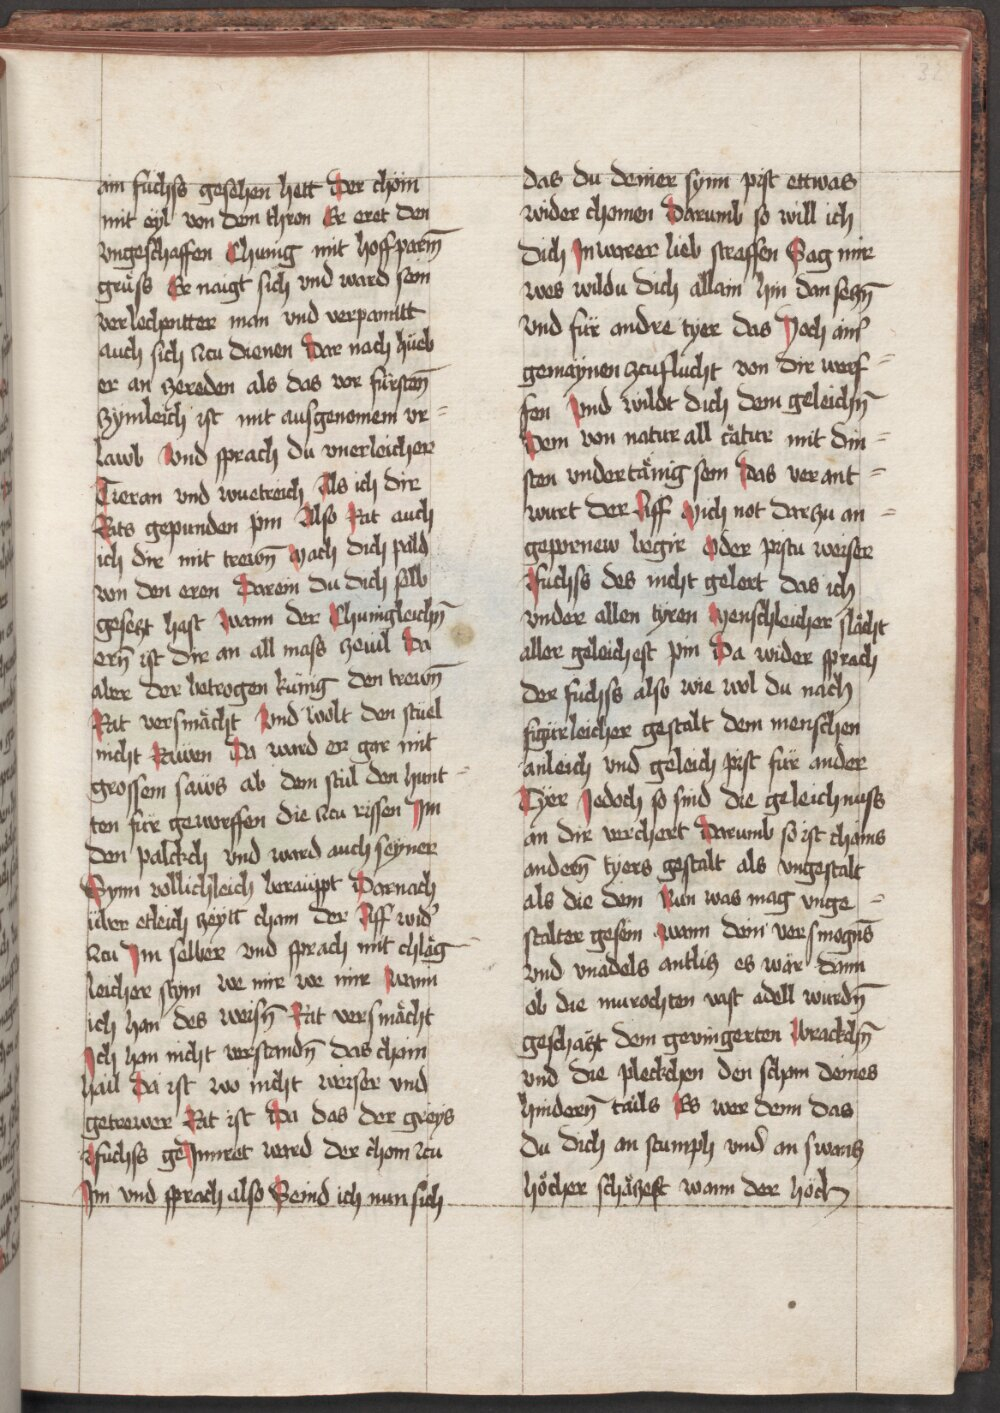 ain fuchss gesehen hett Der chom
mit eyl von dem thron Er eret den
vngeschaffen Chunig mit hoffparn̄
gruͤss Er naigt sich vnd ward sein
verlechentter man vnd verpanntt
auch sich zcu dienen Dar nach huͤeb
er an zereden als das vor fürstn̄
zymleich ist mit ausgenomem vr=
lawb Vnd sprach du vnerleicher
Tieran vnd wuetreich Als ich dir
Rats gepunden pin Also Rat auch
ich dir mit trewn̄ Mach dich pald
von den eren Darein du dich selb
gesetzt hast Wann der Chunigleichn̄
ern̄ ist dir an all mass zeuil Da
aber der betrogen künig den trewn̄
Rat versmächt Vnd wolt den stuel
nicht Rawen Da ward er gar mit
grossem sawss ab dem stul den hunt=
ten für geworffen die zcu rissen Im
den palckch vnd ward auch seyner
Synn vollichleich berauppt Darnach
über etleich zeytt cham der Aff wid̓
zcu Im selber vnd sprach mit chlåg=
leicher stym we mir we mir Wann
ich han des weisn̄ Rat versmächt
Ich han nicht verstandn̄ das chain
hail Da ist wo nicht weiser vnd
getrewer Rat ist Da das der greys
Fuchss geInnret ward der chom zcu
Im vnd sprach also Seind ich nun sich
das du deiner synn pist ettwas
wider chomen Darumb so will ich
dich In warer lieb straffen Sag mir
wes wildu dich allain hin dan seczn̄
vnd für andre tyer das Joch ain̓
gemaynen zcuflucht von dir werf=
fen Vnd wildt dich dem geleichn̄
Dem von natur all catur mit din=
sten vndertänig sein Das verant=
wurt der Aff Mich not darzu an=
gepornew begir Oder pistu weiser
Fuchss des nicht gelert das ich
vnder allen tyren Menschleicher slächt
aller geleichest pin Da wider sprach
der fuchss also wie wol du nach
figurleicher gestalt dem menschen
anleich vnd geleich pist für ander
Tyer Jedoch so sind die geleichnuss
an dir verchert Darumb so ist chains
andern̄ tyers gestalt als vngestalt
als die dein Nun was mag vnge=
stalter gesein Wann dein versmogns̄
vnd vnadels antlitz es wär dann
ob die murochten vast adell wurdn̄
geschätzt dem geringerten Wrackchn̄
vnd die pleckchen den scham deines
hindern̄ tails Es wer denn das
du dich an stumph vnd an swantz
höcher schätzest wann der höch